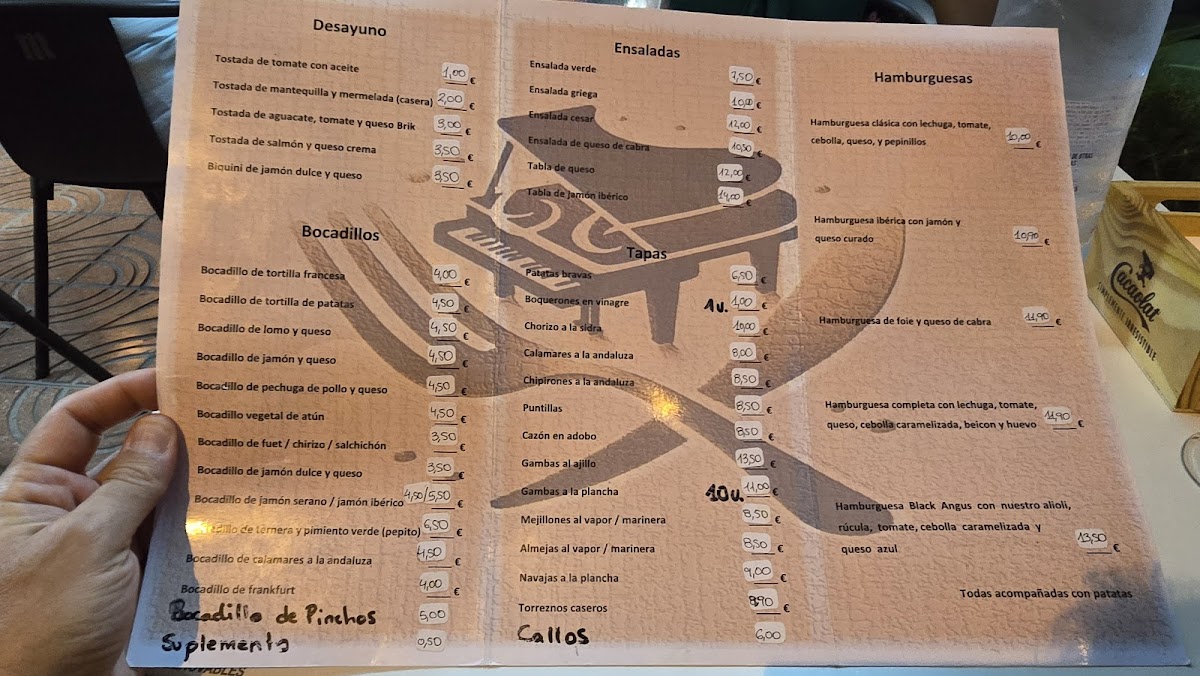 Desayuno
Tostada de tomate con aceite 1,00 €
Tostada de mantequilla y mermelada (casera) 2,00 €
Tostada de aguacate, tomate y queso Brik 3,00 €
Tostada de salmón y queso crema 3,50 €
Biquini de jamón dulce y queso 3,50 €
Bocadillos
Bocadillo de tortilla francesa 4,00 €
Bocadillo de tortilla de patatas 4,50 €
Bocadillo de lomo y queso 4,50 €
Bocadillo de jamón y queso 4,50 €
Bocadillo de pechuga de pollo y queso 4,50 €
Bocadillo vegetal de atún 4,50 €
Bocadillo de fuet / chirizo / salchichón 3,50 €
Bocadillo de jamón dulce y queso 3,50 €
Bocadillo de jamón serano / jamón ibérico 4,50/5,50 €
de ternera y pimiento verde (pepito) 6,50 €
Bocadillo de calamares a la andaluza 4,50 €
Bocadillo de frankfurt 4,00 €
Bocadillo de Pinchos 5,00
Suplemento 0,50
Ensaladas
Ensalada verde 7,50 €
Ensalada griega 10,00 €
Ensalada cesar 12,00 €
Ensalada de queso de cabra 10,50 €
Tabla de queso 12,00 €
Tabla de jamón ibérico 14,00 €
Tapas
Patatas bravas 6,50 €
Boquerones en vinagre 1u. 1,00 €
Chorizo a la sidra 10,00 €
Calamares a la andaluza 8,00 €
Chipirones a la andaluza 8,50 €
Puntillas 8,50 €
Cazón en adobo 8,50 €
Gambas al ajillo 13,50 €
Gambas a la plancha 10u. 11,00 €
Mejillones al vapor / marinera 8,50 €
Almejas al vapor / marinera 8,50 €
Navajas a la plancha 9,00 €
Torreznos caseros 8,90 €
Callos 6,00
Hamburguesas
Hamburguesa clásica con lechuga, tomate,
cebolla, queso, y pepinillos 10,00 €
Hamburguesa ibérica con jamón y
queso curado 10,90 €
Hamburguesa de foie y queso de cabra 11,90 €
Hamburguesa completa con lechuga, tomate,
queso, cebolla caramelizada, beicon y huevo 11,90 €
Hamburguesa Black Angus con nuestro alioli,
rúcula, tomate, cebolla caramelizada y
queso azul 13,50 €
Todas acompañadas con patatas
Cacaolat
SIMPLEMENTE IRRESISTIBLE